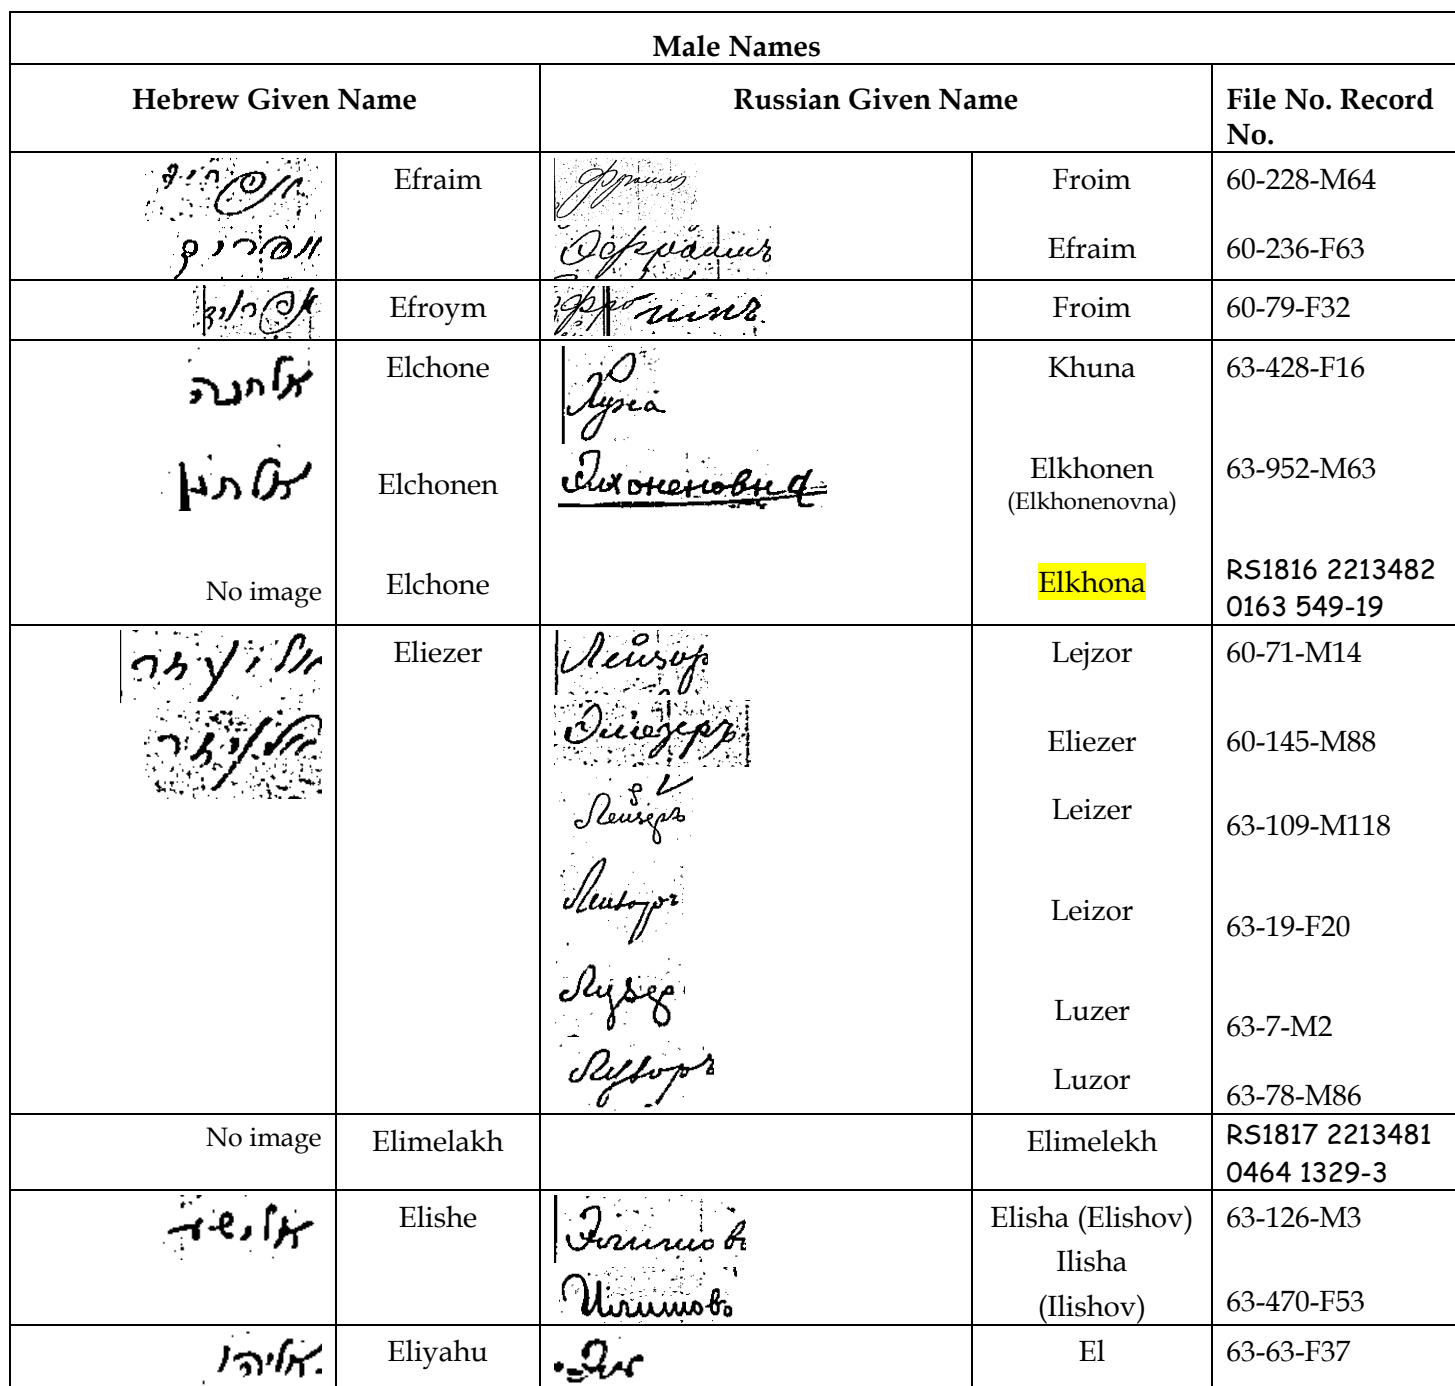 Male Names
Hebrew Given Name Russian Given Name File No. Record No.
אפרים Efraim Froim 60-228-M64
אפרים Efraim Ефраимъ 60-236-F63
Efroym Froim 60-79-F32
אלחנה Elchone Хуна Khuna 63-428-F16
אלחנן Elchonen Элхоненовна Elkhonen 63-952-M63
(Elkhonenovna)
No image Elchone Elkhona RS1816 2213482
0163 549-19
אליעזר Eliezer Лейзор Lejzor 60-71-M14
אליעזר Эліезеръ Eliezer 60-145-M88
Лейзеръ Leizer 63-109-M118
Лейзоръ Leizor 63-19-F20
Лузер Luzer 63-7-M2
Лузоръ Luzor 63-78-M86
No image Elimelakh Elimelekh RS1817 2213481
0464 1329-3
אלישע Elishe Элишовъ Elisha (Elishov) 63-126-M3
Ilisha
Илишовъ (Ilishov) 63-470-F53
אליהו Eliyahu Эль El 63-63-F37